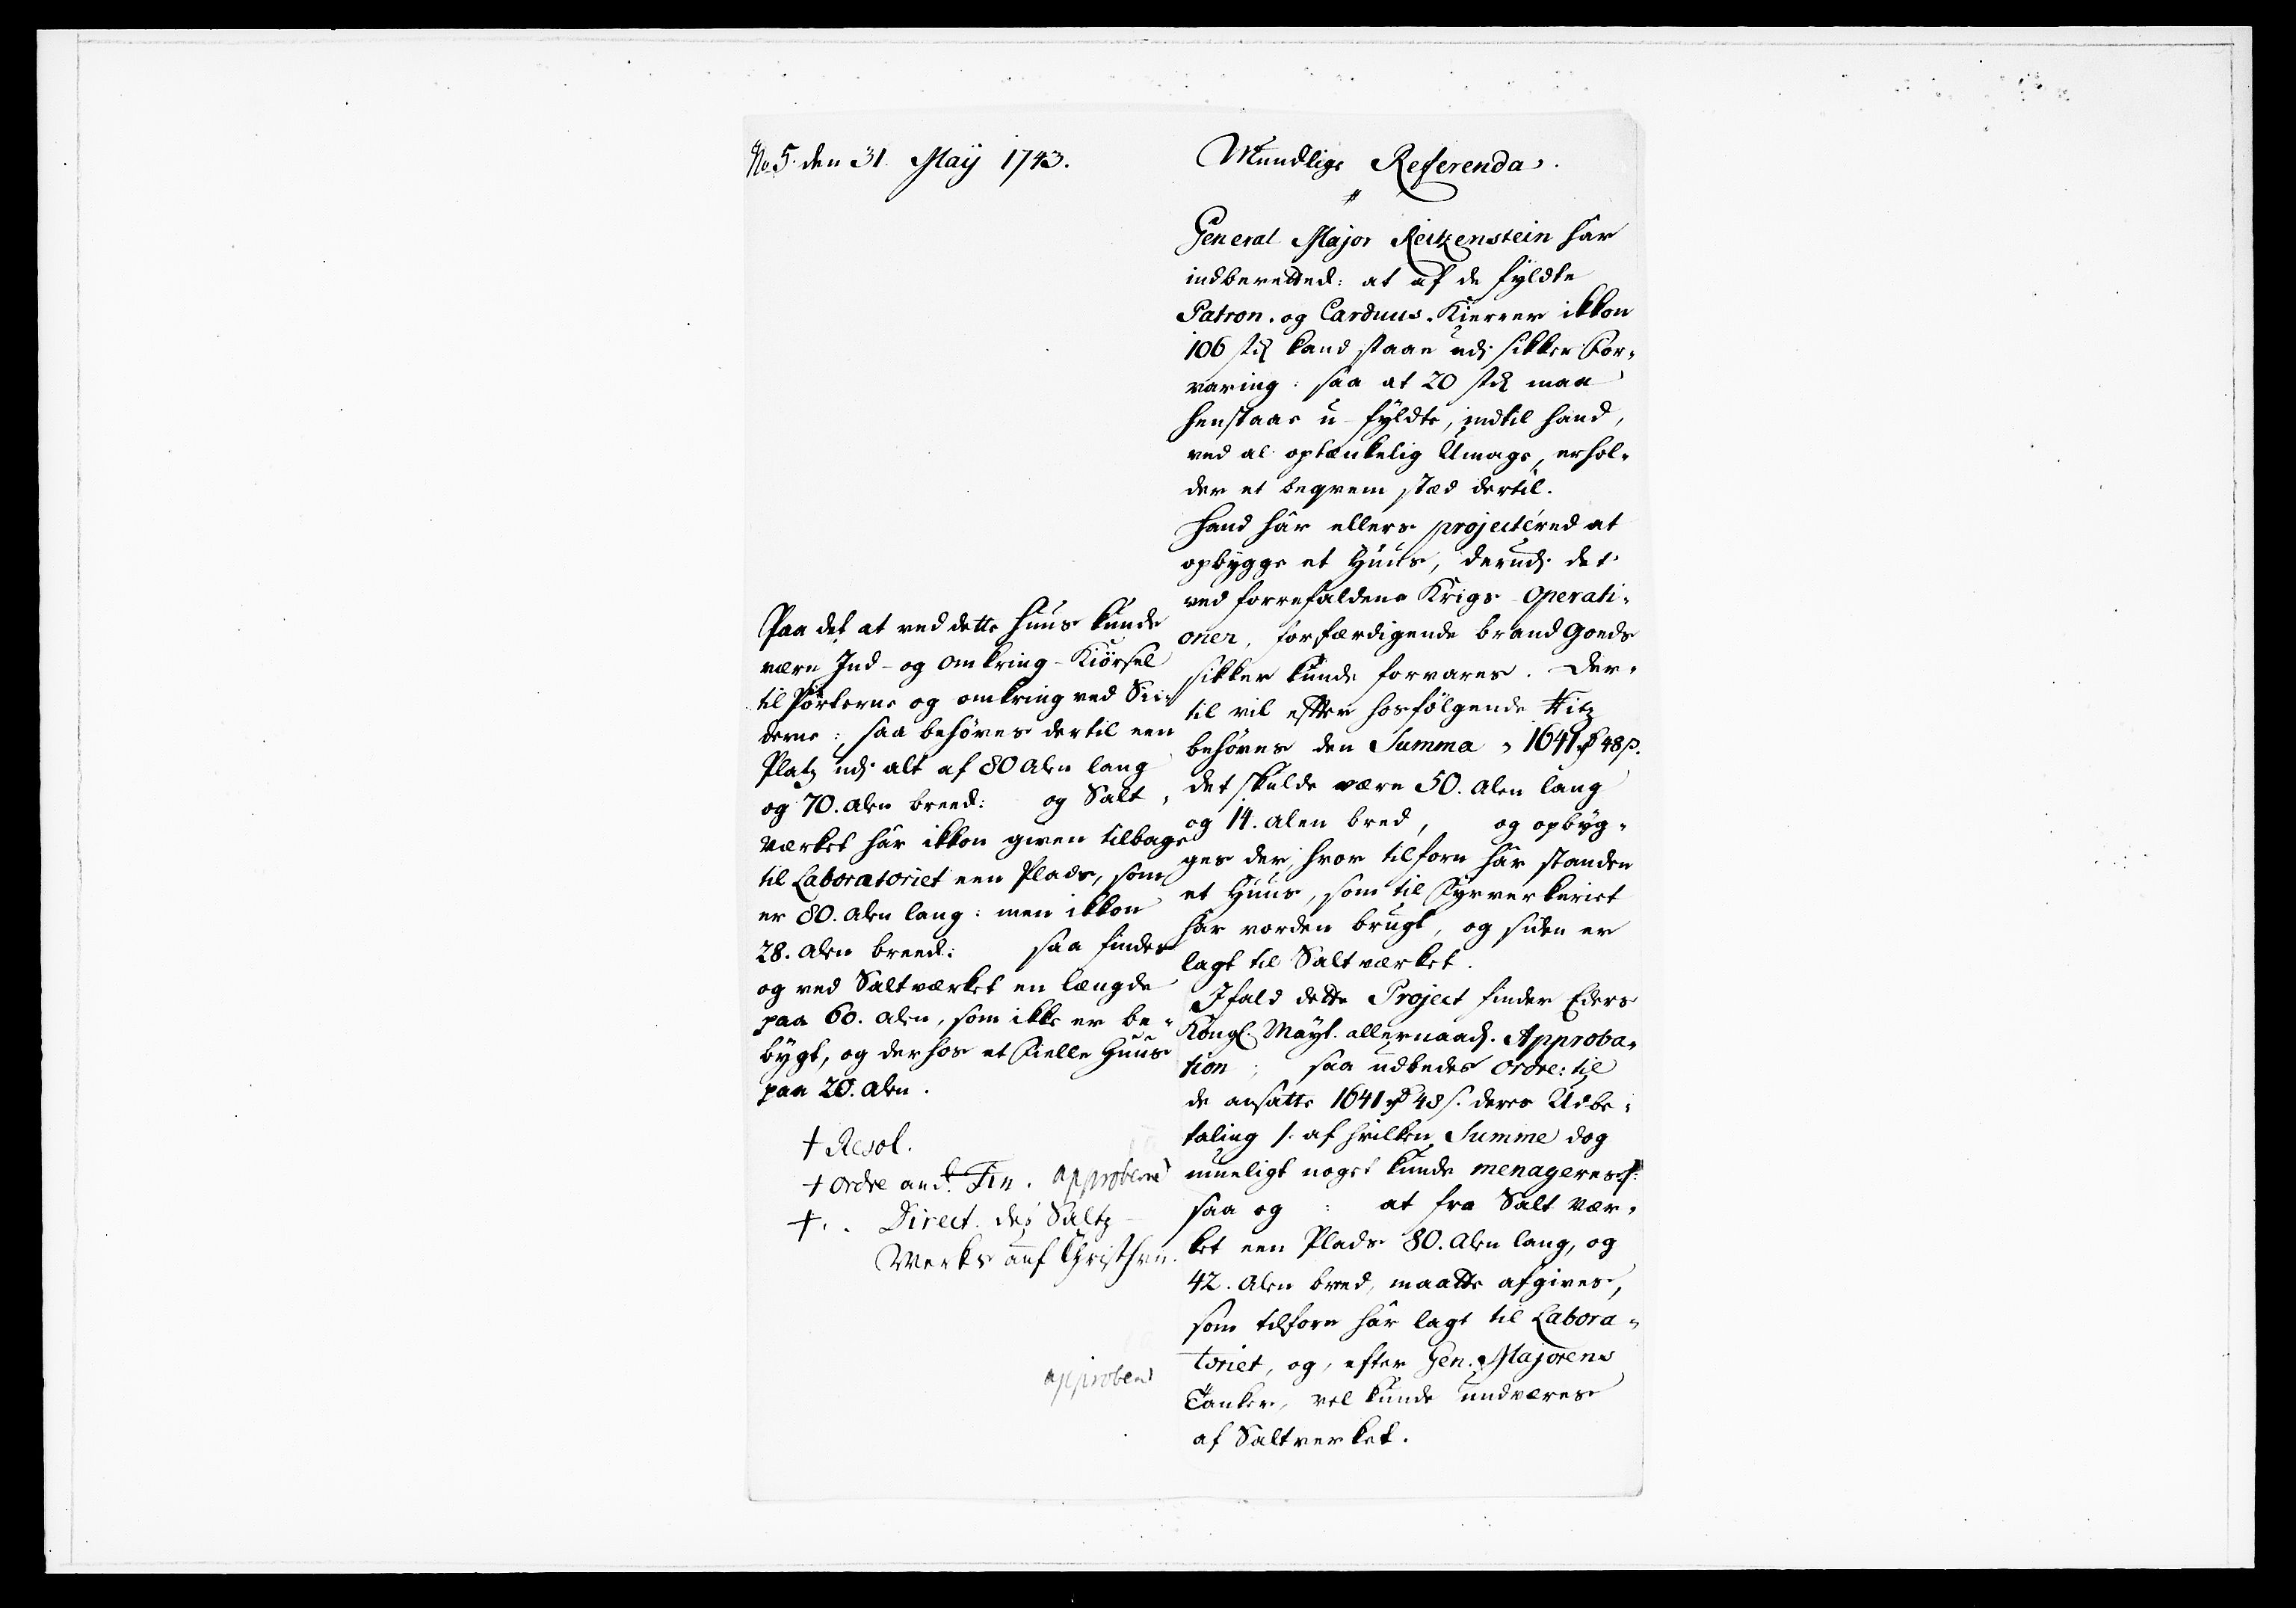 No 5. den 31. Maÿ 1743.
Mundlige Referenda.
General Major Reitzenstein har
indberetted: at af de fyldte
Patron- og Carduus-Kierrer ikkon
106 stk kand staae udj sikker For-
varing: saa at 20 stk maa
henstaae u-fyldte, indtil hand,
ved al optænkelig Umage, erhol-
der et beqvem stæd dertil.
Hand har ellers projectéred at
opbygge et Huus, derudj det
ved forrefaldene Krigs-Operati-
oner, forfærdigende brand Goeds
sikker kunde forvares. Der-
til vil effter hosfölgende Ritz
behöves den Summa, 1641 rd 48 s.
det skulde være 50. Alen lang
og 14. Alen bred, og opbyg-
ges der, hvor tilforn har standen
et Huus, som til Fyrverkeriet
har vorden brugt, og siden er
lagt til Saltværket.
Ifald dette Project finder Eders
Kongl. Mayt. allernaad. Approba-
tion; saa udbedes Ordre: til
de ansatte 1641 rd 48 s. deres Udbe-
taling /: af hvilken Summe dog
mueligt noget kunde menageres :/
saa og : at fra Salt vær-
ket een Plads 80. Alen lang, og
42. Alen bred, maatte afgives,
som tilforn har lagt til Labora-
toriet, og, efter Gen. Majorens
Tanker, vel kunde undværes
af Saltverket.
Paa det at ved dette Huus kunde
være Ind- og omkring-Kiörsel
til Portene og omkring ved Sii-
derne: saa behöves dertil een
Platz udj alt af 80 Alen lang
og 70. Alen breed: og Salt-
værket har ikkon given tilbage
til Laboratoriet een Plads, som
er 80. Alen lang: men ikkon
28. Alen breed: saa findes
og ved Saltværket en længde
paa 60. Alen, som ikke er be-
bygt, og derhos et Fielle Huus
paa 20. Alen.
† Resol.
† Ordre an d. Fin. approbend
† . . Direct. des Saltz
Werks auf Christhvn.
approbend